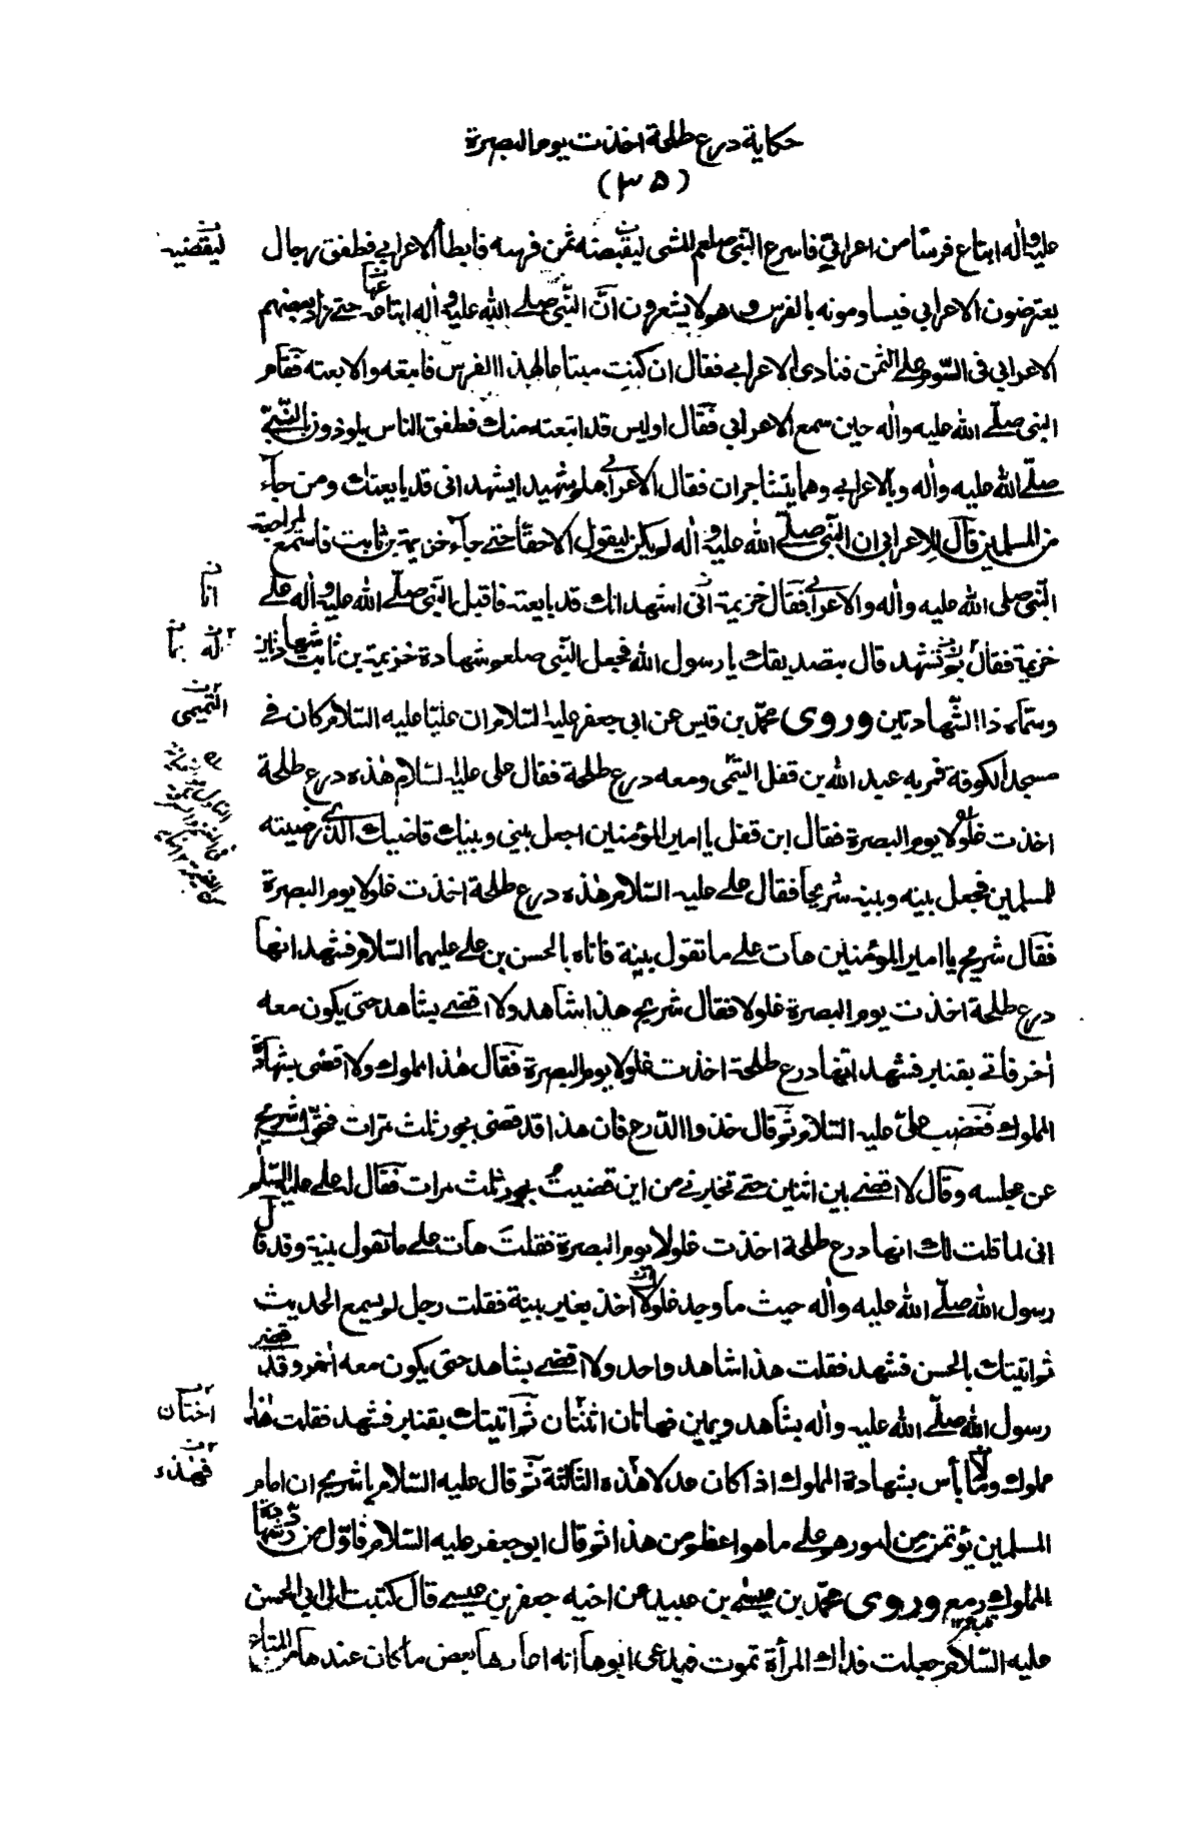 حكاية درع طلحة اخذت يوم البصرة
(۳۵)
عليه واله ابتاع فرسا من اعرابي فاسرع النبي صلعم المشى ليقبضنه ثمن فرسه فابطأ الاعرابي فطفق رجال
ليقضيه
يعترضون الاعرابي فيساومونه بالفرس وهو لا يشعرون انّ النّبي صلى الله عليه واله ابتاعه حتى زاد بعضهم
الاعرابي فى السّوم على الثمن فنادى الاعرابي فقال ان كنت مبتاعا لهذا الفرس فابتعه والا بعته فقام
النبى صلّى الله عليه واله حين سمع الاعرابي فقال اوليس قد ابتعته منك فطفق الناس يلوذون بالنّبيّ
صلّى الله عليه واله وبالاعرابي وهما يتشاجران فقال الاعرابي هلم شهيدا يشهد انى قد بايعتك ومن جاء
من المسلمين قال للاعرابي ان النّبي صلّى الله عليه واله لم يكن ليقول الا حقّا حتى جاء خزيمة بن ثابت فاستمع لمراجعة
النّبي صلى الله عليه واله والاعرابي فقال خزيمة انّى اشهد انك قد بايعته فاقبل النّبي صلّى الله عليه واله على
انا
خزيمة فقال بم تشهد قال بتصديقك يا رسول الله فجعل النّبي صلعم شهادة خزيمة بن ثابت شهادتين
له بما
وسمّاه ذا الشّهادتين وروى محمّد بن قيس عن ابى جعفر عليه السّلام ان عليّا عليه السّلام كان فى
التّميمى
مسجد الكوفة فمر به عبد الله بن قفل التّيمّى ومعه درع طلحة فقال على عليه السّلام هذه درع طلحة
اخذت غلولا يوم البصرة فقال ابن قفل يا امير المؤمنين اجعل بينى وبينك قاضيك الذّى رضيته
للمسلمين فجعل بينه وبينه شريحا فقال على عليه السّلام هذه درع طلحة اخذت غلولا يوم البصرة
فقال شريح يا امير المؤمنين هات على ما تقول بينة فاتاه بالحسن بن على عليهما السّلام فشهد انها
درع طلحة اخذت يوم البصرة غلولا فقال شريح هذا شاهد ولا اقضى بشاهد حتى يكون معه
اخر فاتى بقنبر فشهد انها درع طلحة اخذت غلولا يوم البصرة فقال هذا مملوك ولا اقضى بشهادة
المملوك فغضب علىّ عليه السّلام ثم قال خذوا الدّرع فان هذا قد قضى بجور ثلث مرات فتحوّل شريح
عن مجلسه وقال لا اقضى بين اثنين حتى تخبرنى من اين قضيت بجور ثلث مرات فقال له على عليه السّلم
انى لما قلت لك انها درع طلحة اخذت غلولا يوم البصرة فقلت هات على ما تقول بينة وقد قال
رسول الله صلّى الله عليه واله حيث ما وجد غلولا اخذ بغير بينة فقلت رجل لم يسمع الحديث
ثم اتيتك بالحسن فشهد فقلت هذا شاهد واحد ولا اقضى بشاهد حتى يكون معه اخر وقد قضى
رسول الله صلّى الله عليه واله بشاهد ويمين فهاتان اثنتان ثم اتيتك بقنبر فشهد فقلت هذا
اختان
مملوك وما بأس بشهادة المملوك اذا كان عدلا هذه الثالثة ثم قال عليه السّلام يا شريح ان امام
فهذه
المسلمين يؤتمن من امورهم على ما هو اعظم من هذا ثم قال ابو جعفر عليه السّلام فاوّل من ردّ شهادة
المملوك رمع وروى محمّد بن عيسى بن عبيد عن اخيه جعفر بن عيسى قال كتبت الى ابى الحسن
عليه السّلام جعلت فداك المرأة تموت فيدعى ابوها انه اعارها بعض ما كان عندها من المتاع